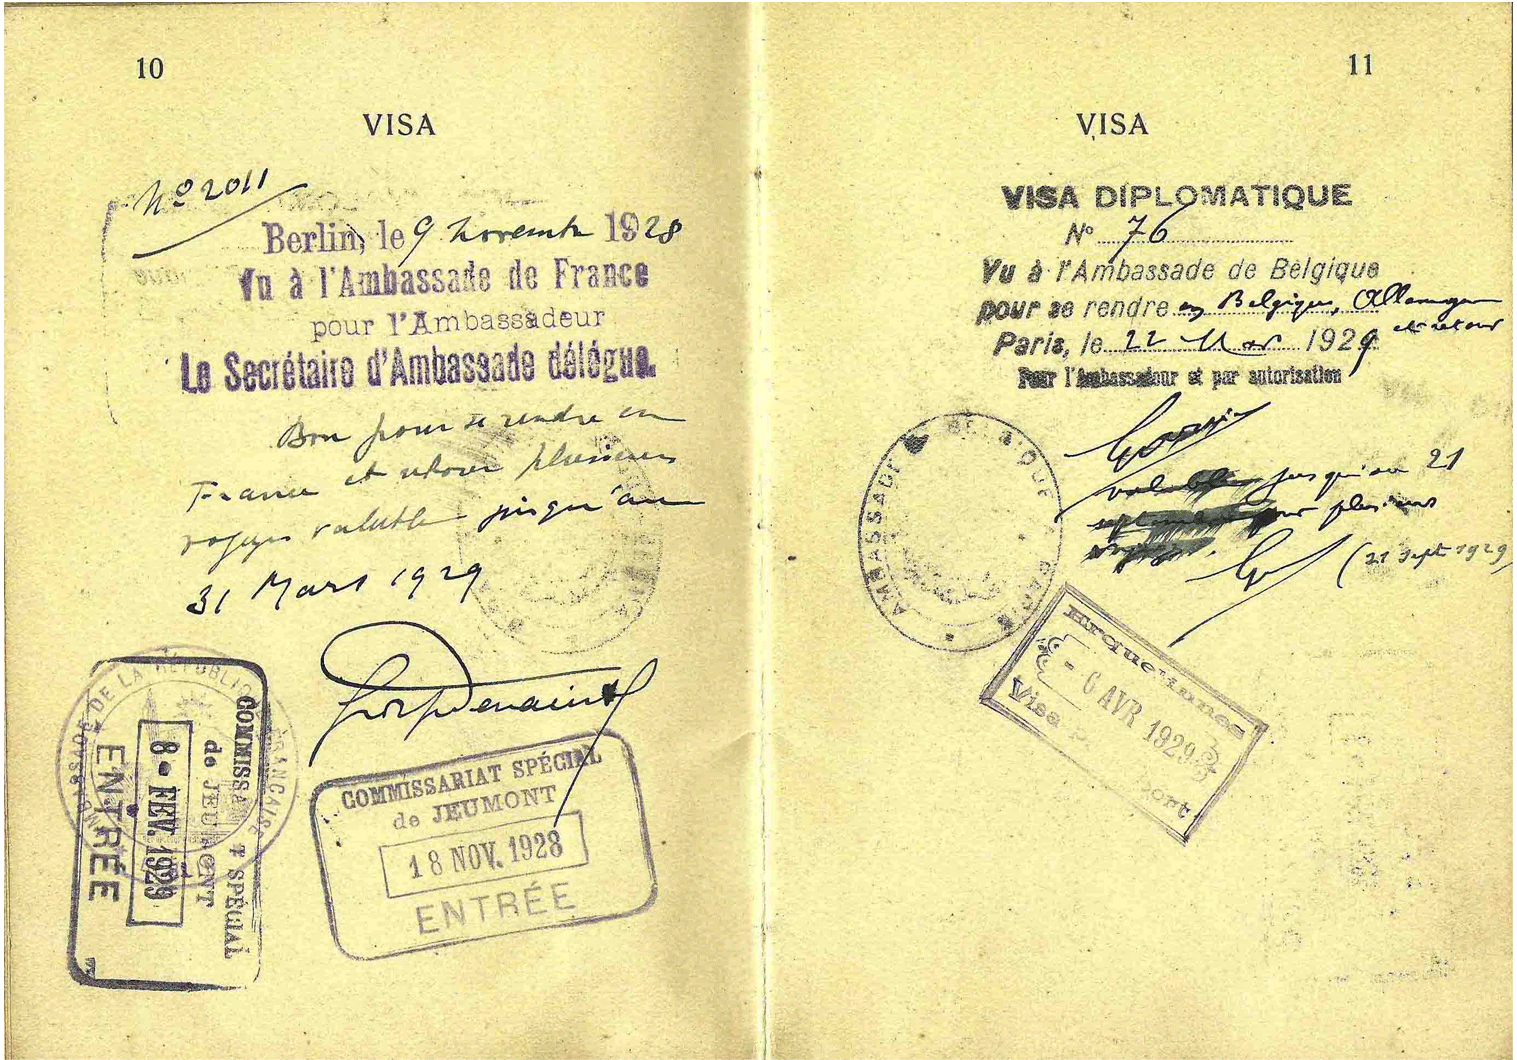 10
VISA
Nº 2011
Berlin, le 9 Novembre 1928
Vu à l'Ambassade de France
pour l'Ambassadeur
Le Secrétaire d'Ambassade délégué.
Bon pour se rendre en
France et retour plusieurs
voyages valable jusqu'au
31 Mars 1929
AMBASSADE DE LA RÉPUBLIQUE FRANÇAISE
COMMISSARIAT SPÉCIAL
de JEUMONT
8 - FEV. 1929
ENTRÉE
COMMISSARIAT SPÉCIAL
de JEUMONT
18 NOV. 1928
ENTRÉE
11
VISA
VISA DIPLOMATIQUE
Nº 76
Vu à l'Ambassade de Belgique
pour se rendre en Belgique, Allemagne
et retour
Paris, le 22 Mars 1929
Pour l'Ambassadeur et par autorisation
AMBASSADE DE BELGIQUE PARIS
valable jusqu'au 21
septembre pour plusieurs
voyages.
(21 Sept 1929)
Erquelinnes
- 6 AVR 1929
Visa